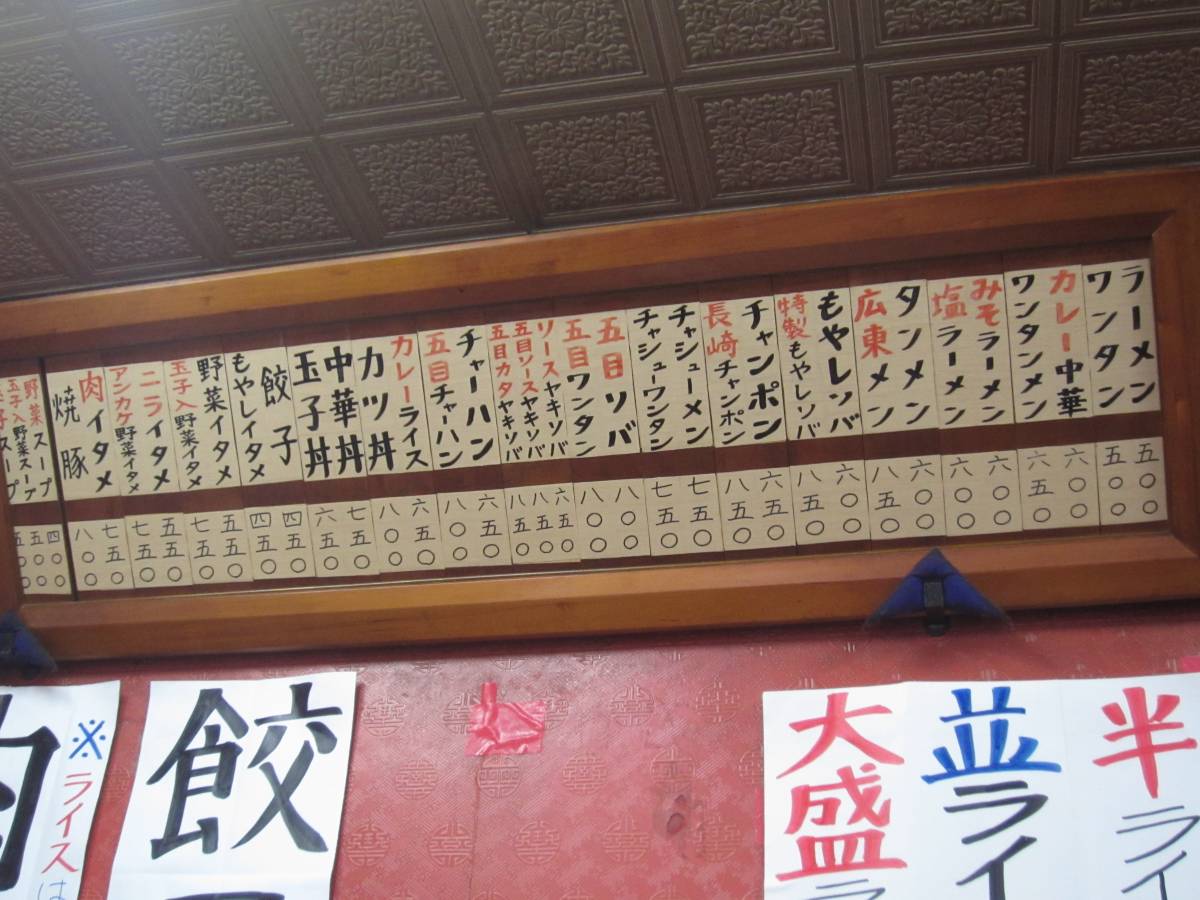 ラーメン
五五〇
ワンタン
五〇〇
カレー中華
六〇〇
ワンタンメン
六五〇
みそラーメン
六〇〇
塩ラーメン
六〇〇
タンメン
六〇〇
広東メン
八五〇
もやしソバ
六〇〇
特製もやしソバ
八五〇
チャンポン
六五〇
長崎チャンポン
八五〇
チャシューメン
七五〇
チャシューワンタン
七五〇
五目ソバ
八〇〇
五目ワンタン
八〇〇
ソースヤキソバ
六五〇
五目ソースヤキソバ
八五〇
五目カタヤキソバ
八五〇
チャーハン
六五〇
五目チャーハン
八〇〇
カレーライス
六五〇
カツ丼
八〇〇
中華丼
七五〇
玉子丼
六五〇
餃子
四五〇
もやしイタメ
四五〇
野菜イタメ
五五〇
玉子入野菜イタメ
七五〇
ニライタメ
五五〇
アンカケ野菜イタメ
七五〇
肉イタメ
七五〇
焼豚
八〇〇
野菜スープ
四〇〇
玉子入野菜スープ
五〇〇
スープ
半ライ
並ライ
大盛ラ
餃
※ライスは
肉